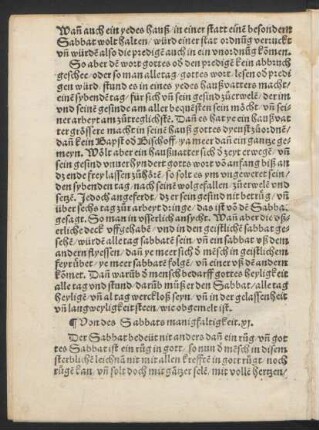 Wañ auch ein yedes hauß in einer statt einẽ besondern
Sabbat wolt halten/ würd einer stat ordnũg verruckt
vñ würdē also die predigē auch in ein vnordnũg kömen.
So aber dẽ wort gottes oð den predigē kein abbruch
geschee/ oder so man alle tag/ gottes wort/ lesen oð predi
gen würd/ stund es in eines yedes haußvatters macht/
einẽ sybendē tag/ für sich vñ sein gesind zů erwelē/ der im
vnd seinē gesinde am aller beqüestẽ sein möcht/ vñ sei-
ner arbeyt am zůtreglichstē. Dañ es hat ye ein haußvat
ter grössere macht in seinē hauß gottes dyenst zůordnē/
dañ kein Bapst oð Bischoff/ ya meer dañ ein gantze ge-
meyn. Wölt aber ein haußuatter sich ð zeyt erwegē/ vñ
sein gesind on vnderhyndert gottes wort võ anfang biß an
dz ende frey lassen zůhörē/ so solt es ym vngeweret sein/
den sybenden tag/ nach seinē wolgefallen/ zů erwelē vnd
setzē. Jedoch angeferbt/ dz er sein gesind nit betrüg/ vñ
über sechs tag zur arbeyt dringe/ das ist võ dē Sabbat
gesagt. So man in vsserlich ansycht. Wañ aber die vß-
erliche deck vffgehabē/ vnd in den geistlichē sabbat gese-
sehē/ würdē alle tag sabbatē sein/ vñ ein sabbat vß dem
andern flyessen/ dañ ye meer sich ð mēsch in geistlichem
feyr übet/ ye meer sabbatē folgē/ vñ einer vß dē andern
kõmet. Dañ warüb ð mensch bedarff gottes heyligkeit
alle tag vnd stund/ darüb můß er den Sabbat/ alle tag
heyligē/ vñ al tag wercklos seyn/ vñ in der gelassenheit
vñ langweyligkeit steen/ wie obgemelt ist.
¶ Von des Sabbats manigfaltigkeit. xj.
Der Sabbat bedeüt nit anders dañ ein rüg/ vñ got
tes Sabbat ist ein rüg in gott/ so nun ð mēsch in disem
sterbliche leichnã nit mit allen krefftē in gott rügē/ noch
rügē kan/ vñ solt doch mit gãtzer selē/ mit vollē hertzen/